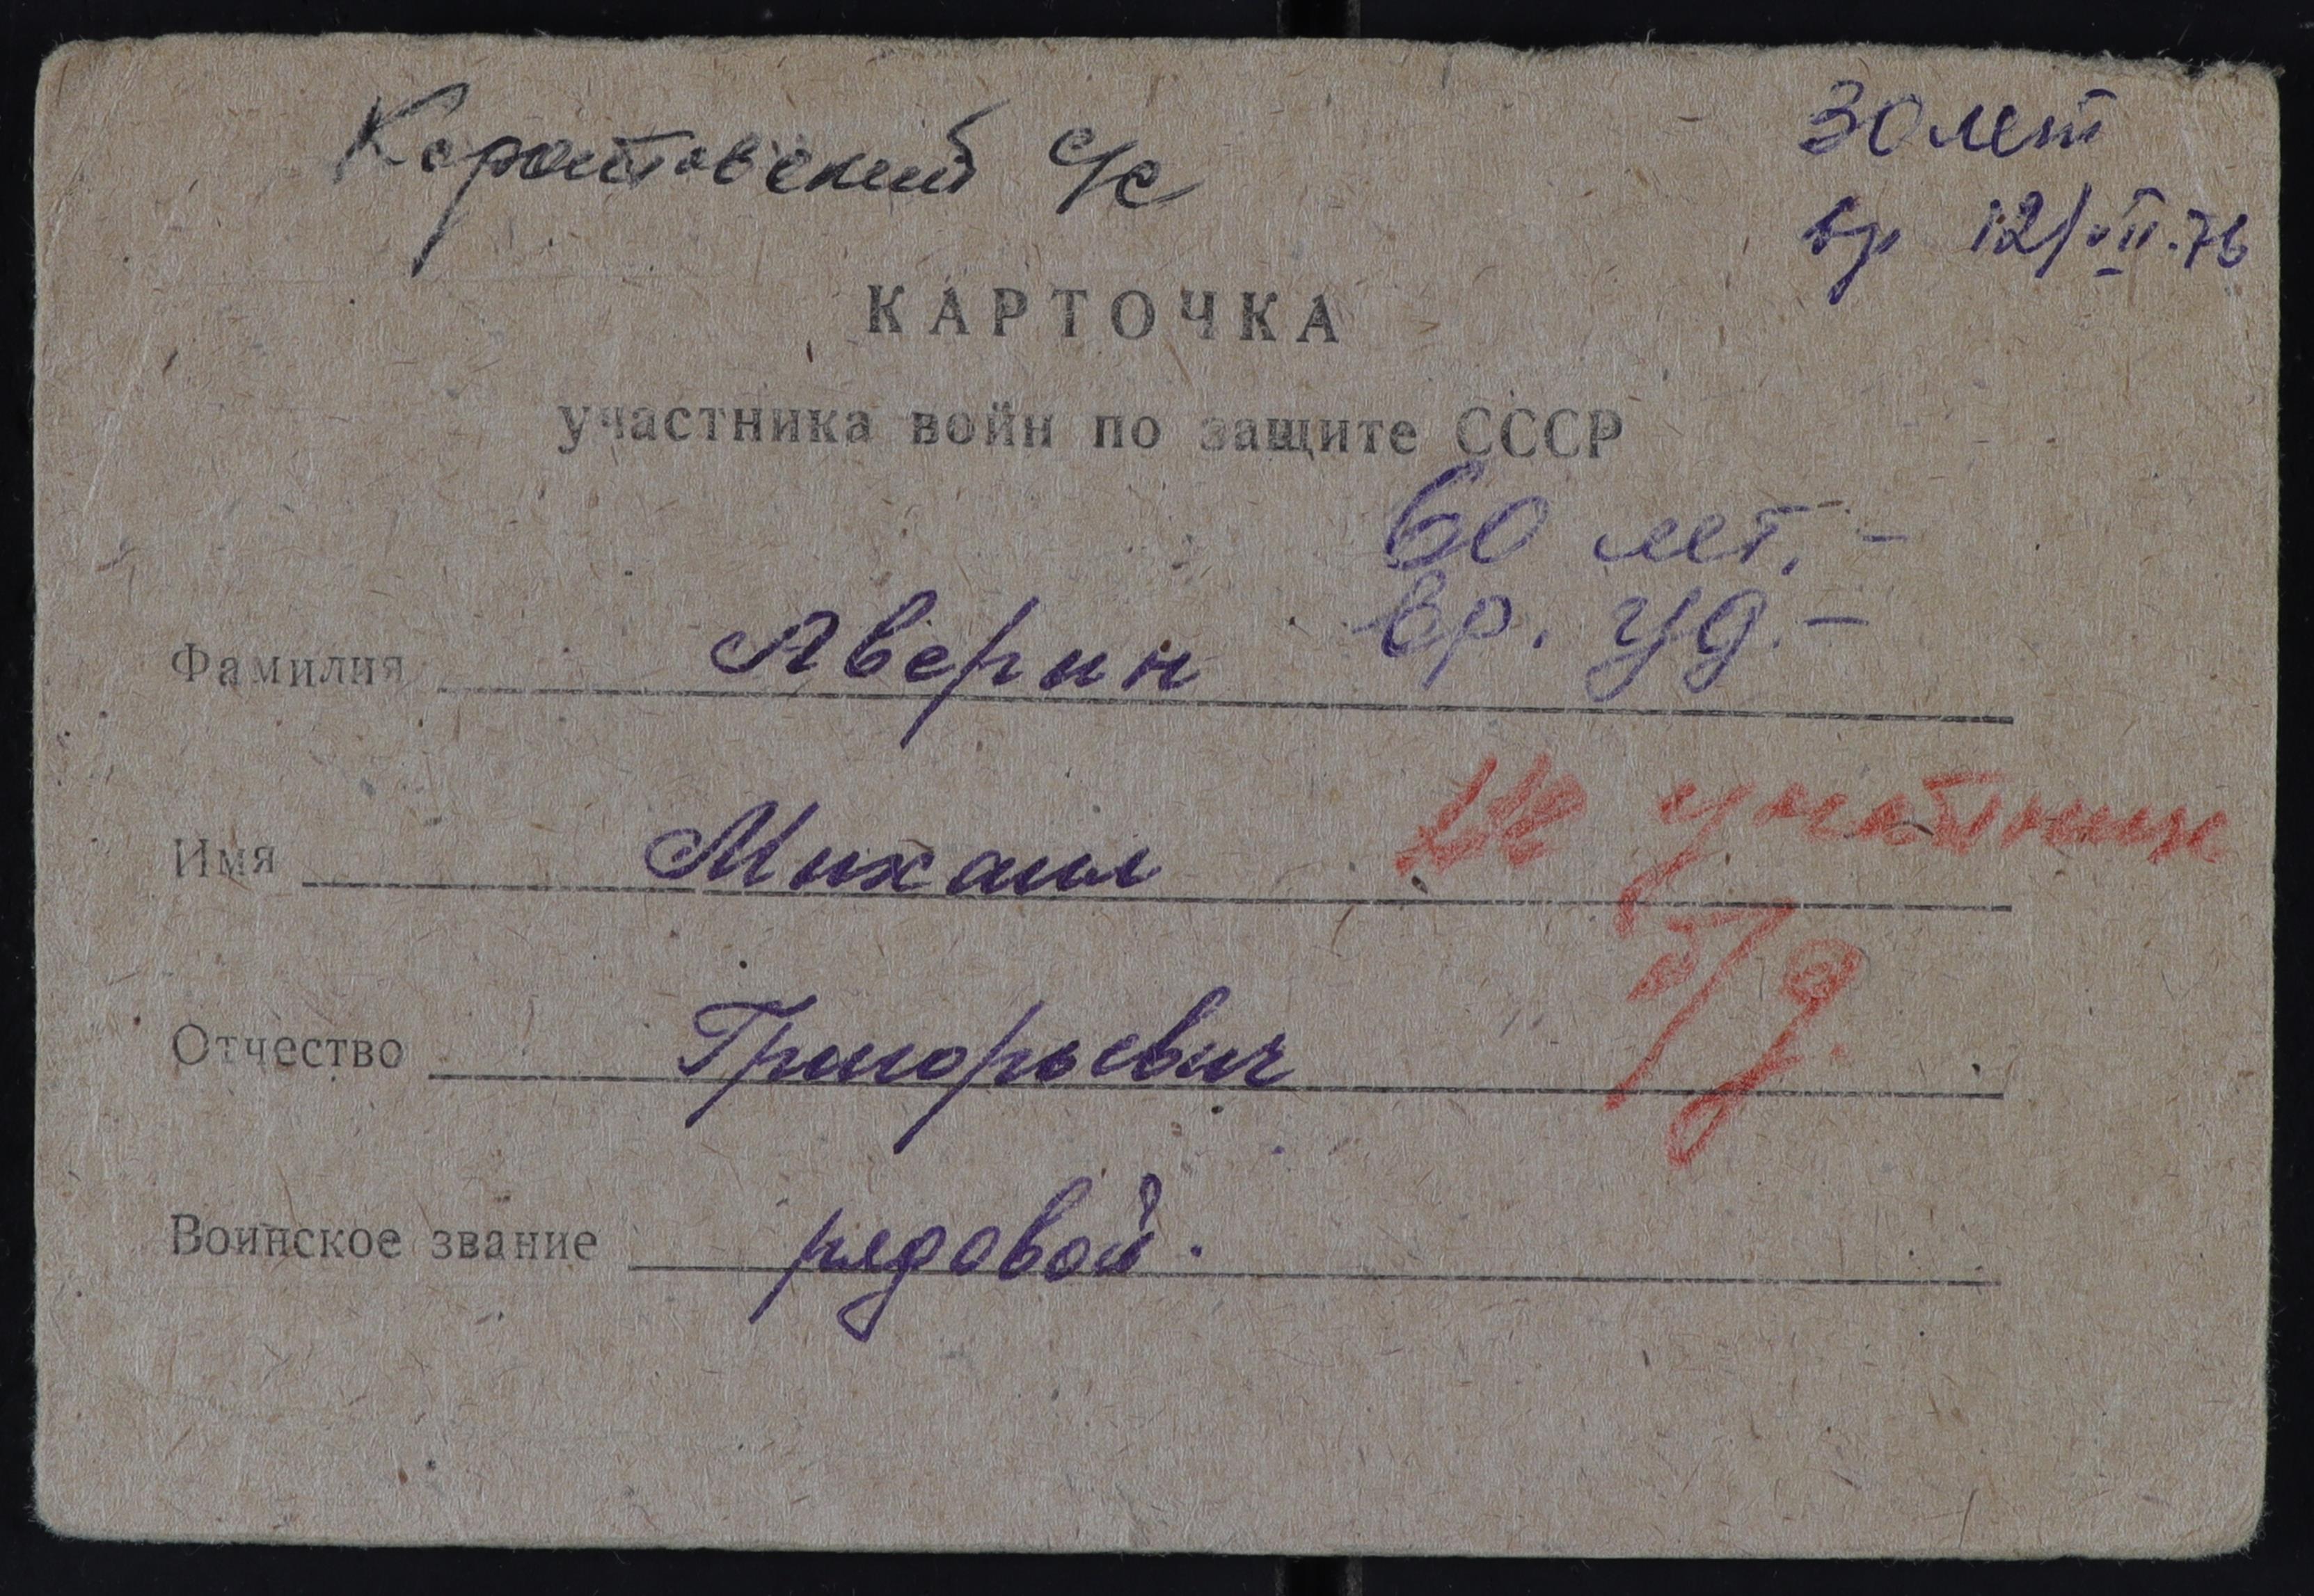 Коротовский с/с
30 лет
вр 12/VII.76
КАРТОЧКА
участника войн по защите СССР
60 лет. -
вр. уд. -
Фамилия Аверин
Имя Михаил
не участник
Отчество Григорьевич
б/д.
Воинское звание рядовой.